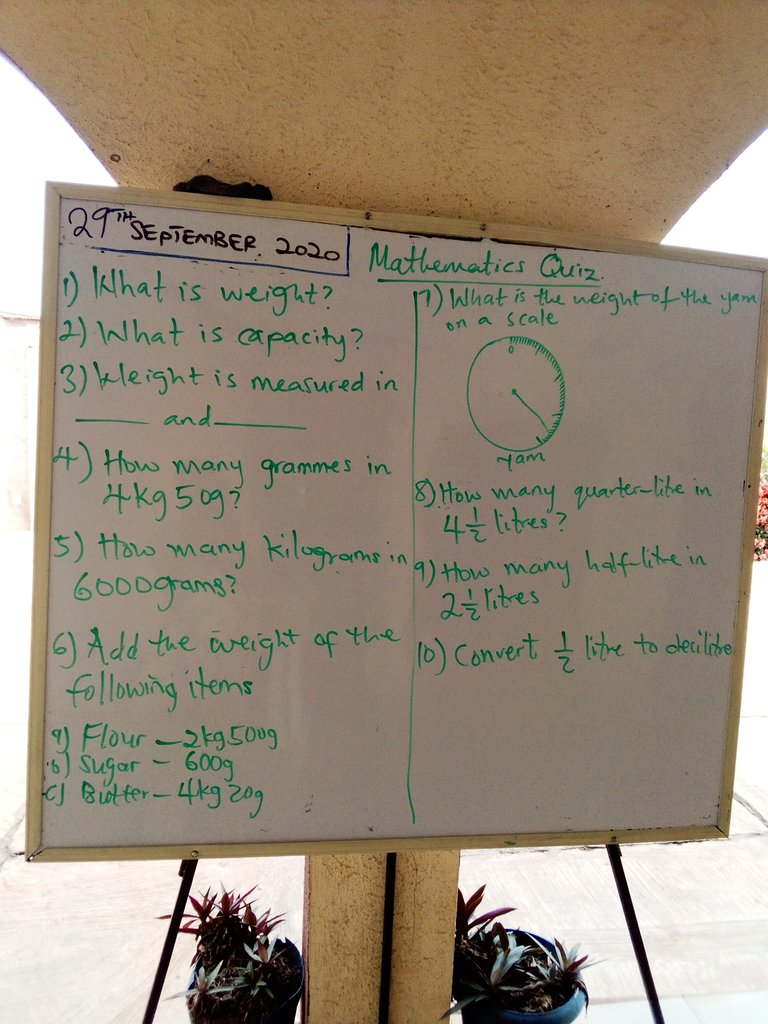 29TH SEPTEMBER 2020
Mathematics Quiz
1) What is weight?
2) What is capacity?
3) Weight is measured in
_____ and _____
4) How many grammes in
4kg 50g?
5) How many kilograms in
6000grams?
6) Add the weight of the
following items
a) Flour - 2kg 500g
b) Sugar - 600g
c) Butter - 4kg 20g
7) What is the weight of the yam
on a scale
0
yam
8) How many quarter-litre in
4 1/2 litres?
9) How many half-litre in
2 1/2 litres
10) Convert 1/2 litre to decilitre